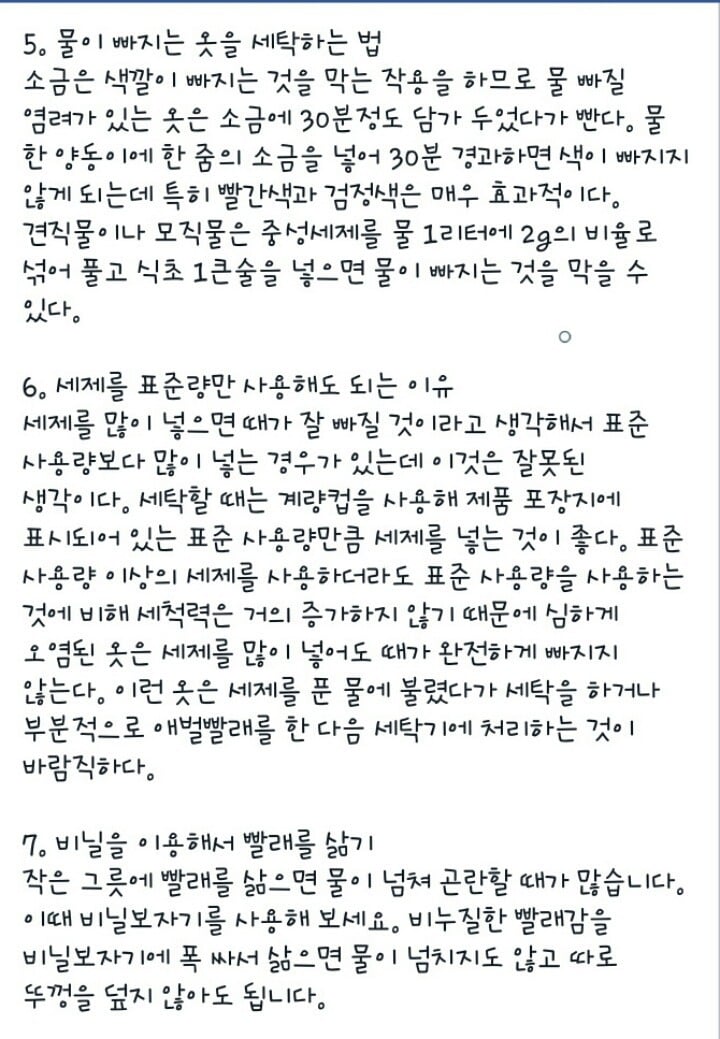 5. 물이 빠지는 옷을 세탁하는 법
소금은 색깔이 빠지는 것을 막는 작용을 하므로 물 빠질
염려가 있는 옷은 소금에 30분정도 담가 두었다가 빤다. 물
한 양동이에 한 줌의 소금을 넣어 30분 경과하면 색이 빠지지
않게 되는데 특히 빨간색과 검정색은 매우 효과적이다.
견직물이나 모직물은 중성세제를 물 1리터에 2g의 비율로
섞어 풀고 식초 1큰술을 넣으면 물이 빠지는 것을 막을 수
있다.
6. 세제를 표준량만 사용해도 되는 이유
세제를 많이 넣으면 때가 잘 빠질 것이라고 생각해서 표준
사용량보다 많이 넣는 경우가 있는데 이것은 잘못된
생각이다. 세탁할 때는 계량컵을 사용해 제품 포장지에
표시되어 있는 표준 사용량만큼 세제를 넣는 것이 좋다. 표준
사용량 이상의 세제를 사용하더라도 표준 사용량을 사용하는
것에 비해 세척력은 거의 증가하지 않기 때문에 심하게
오염된 옷은 세제를 많이 넣어도 때가 완전하게 빠지지
않는다. 이런 옷은 세제를 푼 물에 불렸다가 세탁을 하거나
부분적으로 애벌빨래를 한 다음 세탁기에 처리하는 것이
바람직하다.
7. 비닐을 이용해서 빨래를 삶기
작은 그릇에 빨래를 삶으면 물이 넘쳐 곤란할 때가 많습니다.
이때 비닐보자기를 사용해 보세요. 비누질한 빨래감을
비닐보자기에 폭 싸서 삶으면 물이 넘치지도 않고 따로
뚜껑을 덮지 않아도 됩니다.